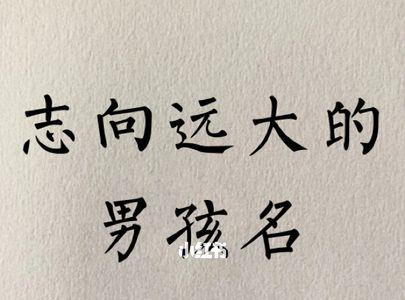 志向远大的
男孩名
小红书